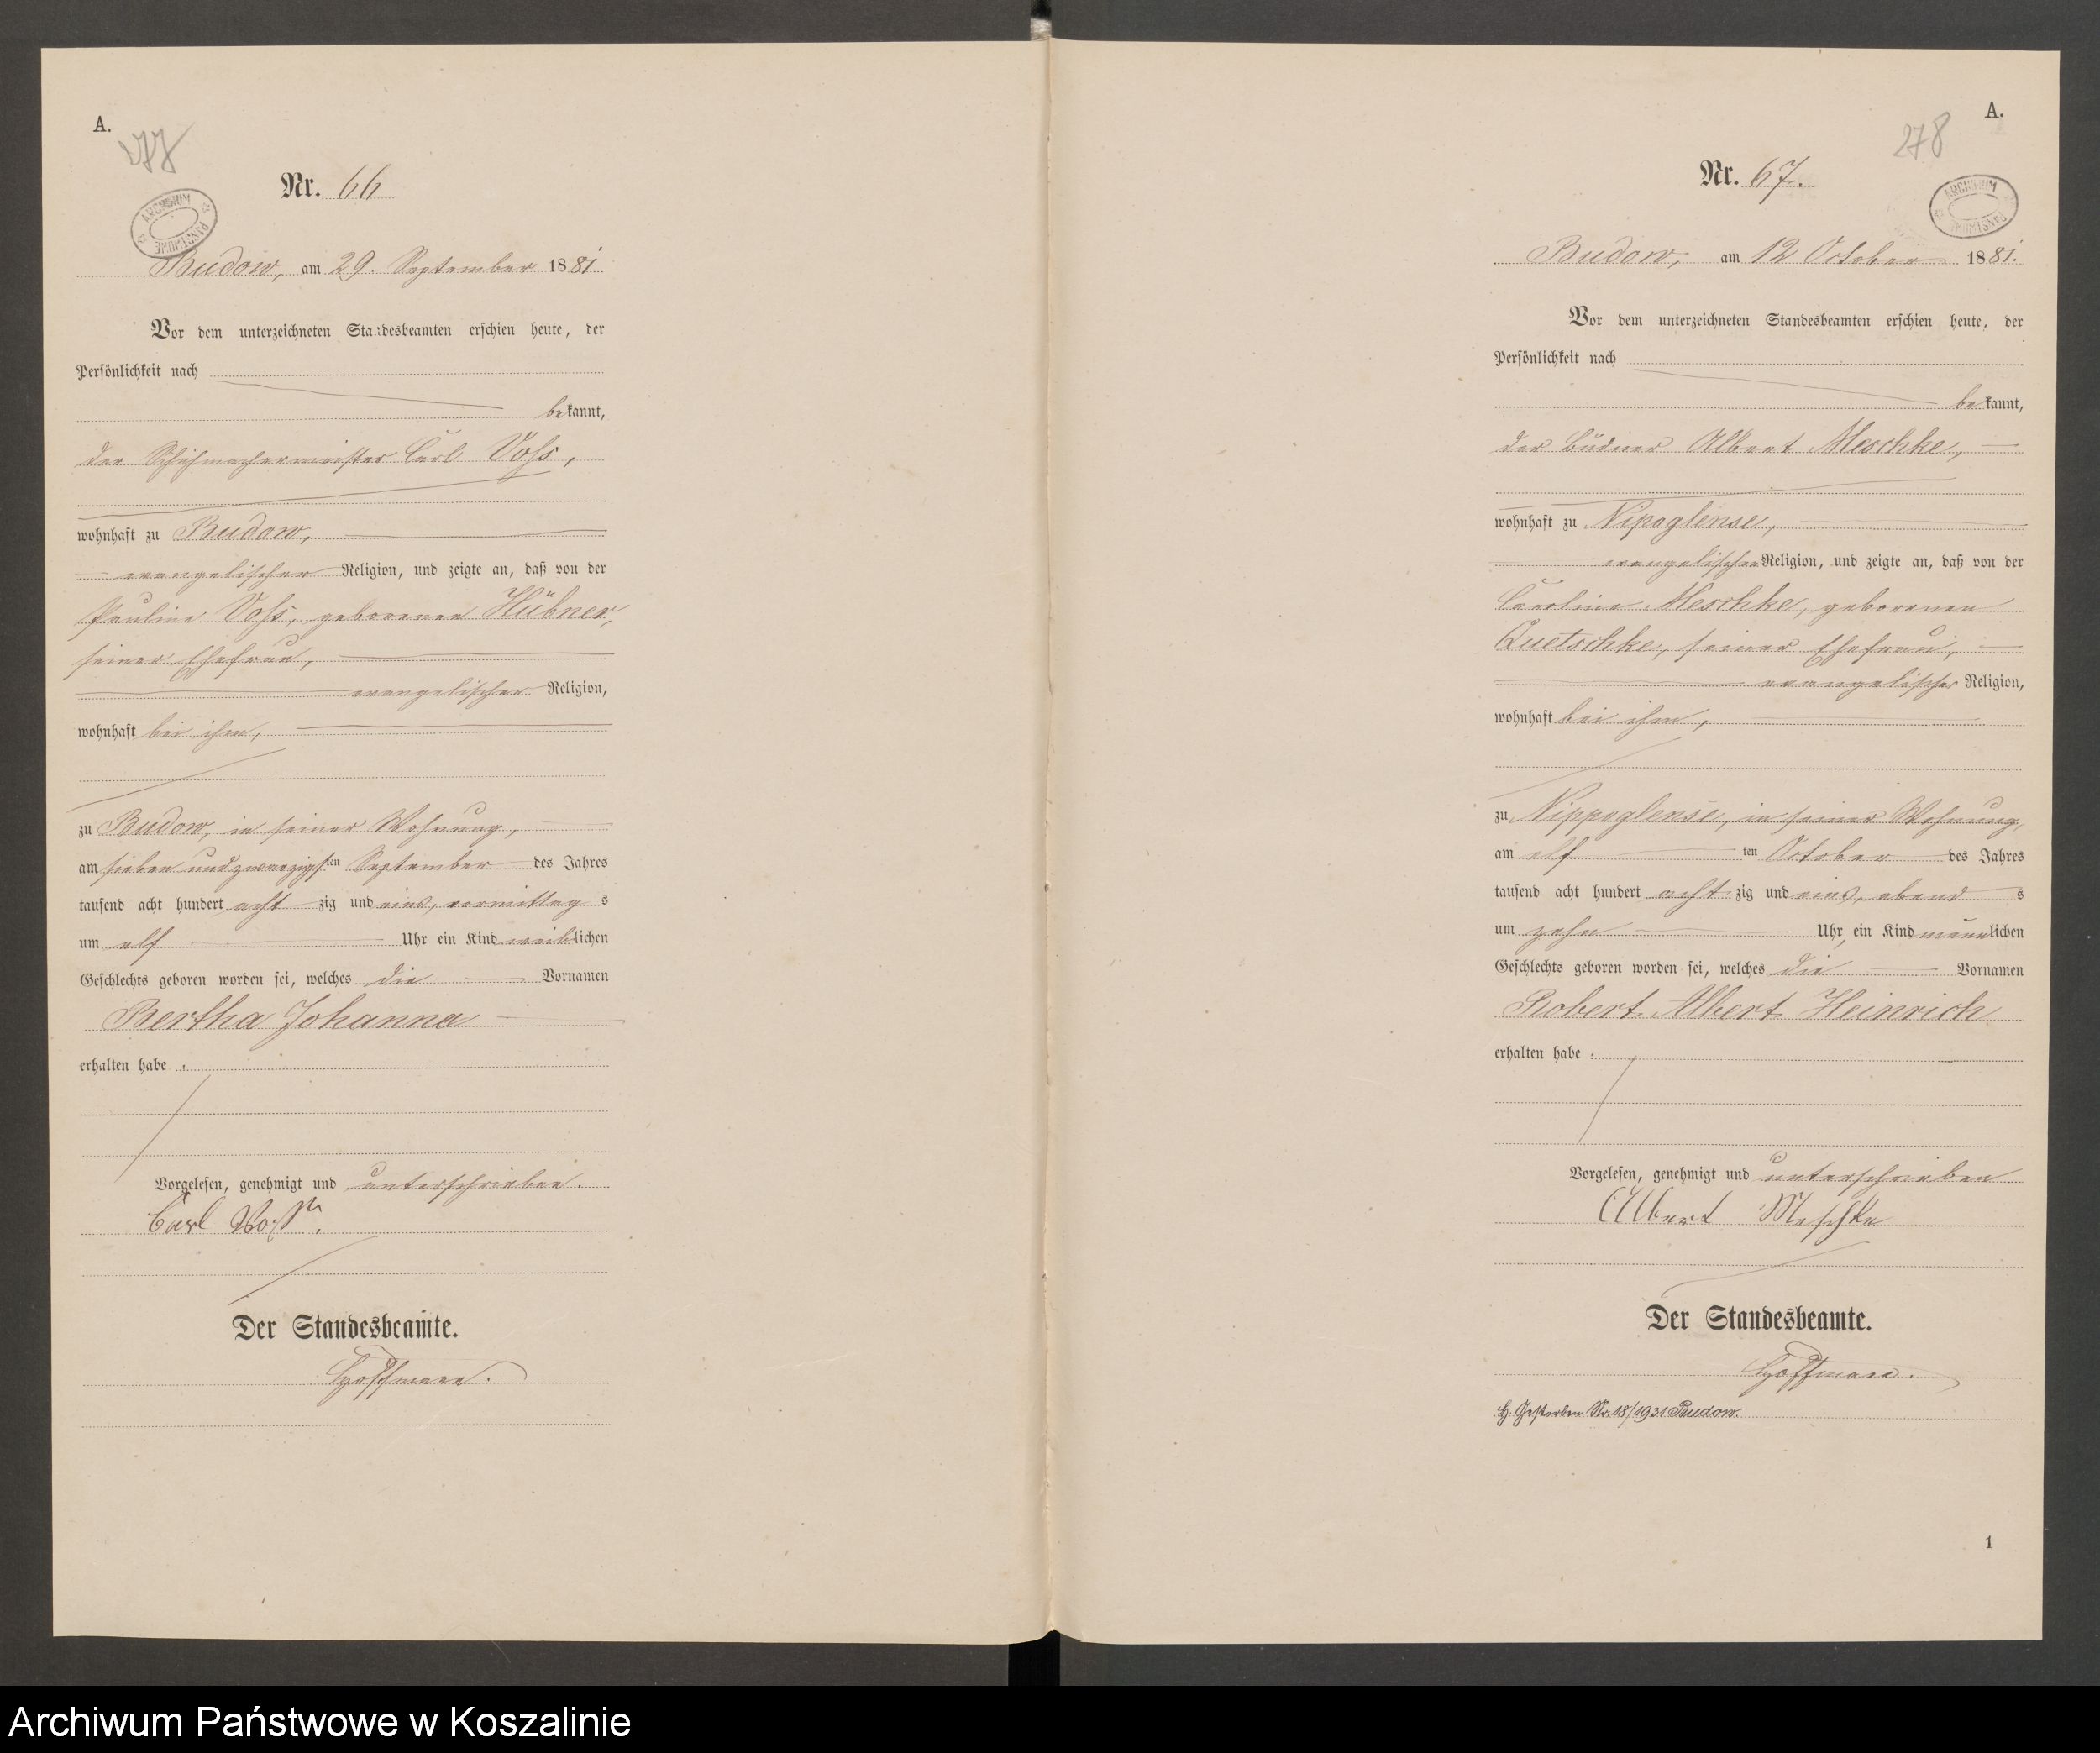 A.
277
Nr. 66
ARCHIWUM PAŃSTWOWE
Budow, am 29. September 1881.
Vor dem unterzeichneten Standesbeamten erschien heute, der
Persönlichkeit nach
bekannt,
der Schuhmachermeister Carl Voss,
wohnhaft zu Budow,
evangelischer Religion, und zeigte an, daß von der
Pauline Voss, geborenen Hübner,
seiner Ehefrau,
evangelischer Religion,
wohnhaft bei ihm,
zu Budow, in seiner Wohnung,
am sieben und zwanzigsten September des Jahres
tausend acht hundert acht zig und eins, vormittag s
um elf Uhr ein Kind weiblichen
Geschlechts geboren worden sei, welches die Vornamen
Bertha Johanna
erhalten habe.
Vorgelesen, genehmigt und unterschrieben.
Carl Voß.
Der Standesbeamte.
Hoffmann.
A.
278
Nr. 67.
ARCHIWUM PAŃSTWOWE
Budow, am 12 October 1881.
Vor dem unterzeichneten Standesbeamten erschien heute, der
Persönlichkeit nach
bekannt,
der Büdner Albert Meschke,
wohnhaft zu Nipoglense,
evangelischer Religion, und zeigte an, daß von der
Caroline Meschke, geborenen
Quetschke, seiner Ehefrau,
evangelischer Religion,
wohnhaft bei ihm,
zu Nippoglense, in seiner Wohnung,
am elf ten October des Jahres
tausend acht hundert acht zig und eins, abend s
um zehn Uhr ein Kind männlichen
Geschlechts geboren worden sei, welches die Vornamen
Robert Albert Heinrich
erhalten habe.
Vorgelesen, genehmigt und unterschrieben
Albert Meschke
Der Standesbeamte.
Hoffmann.
H. Gestorben Nr. 18/1931 Budow.
1
Archiwum Państwowe w Koszalinie